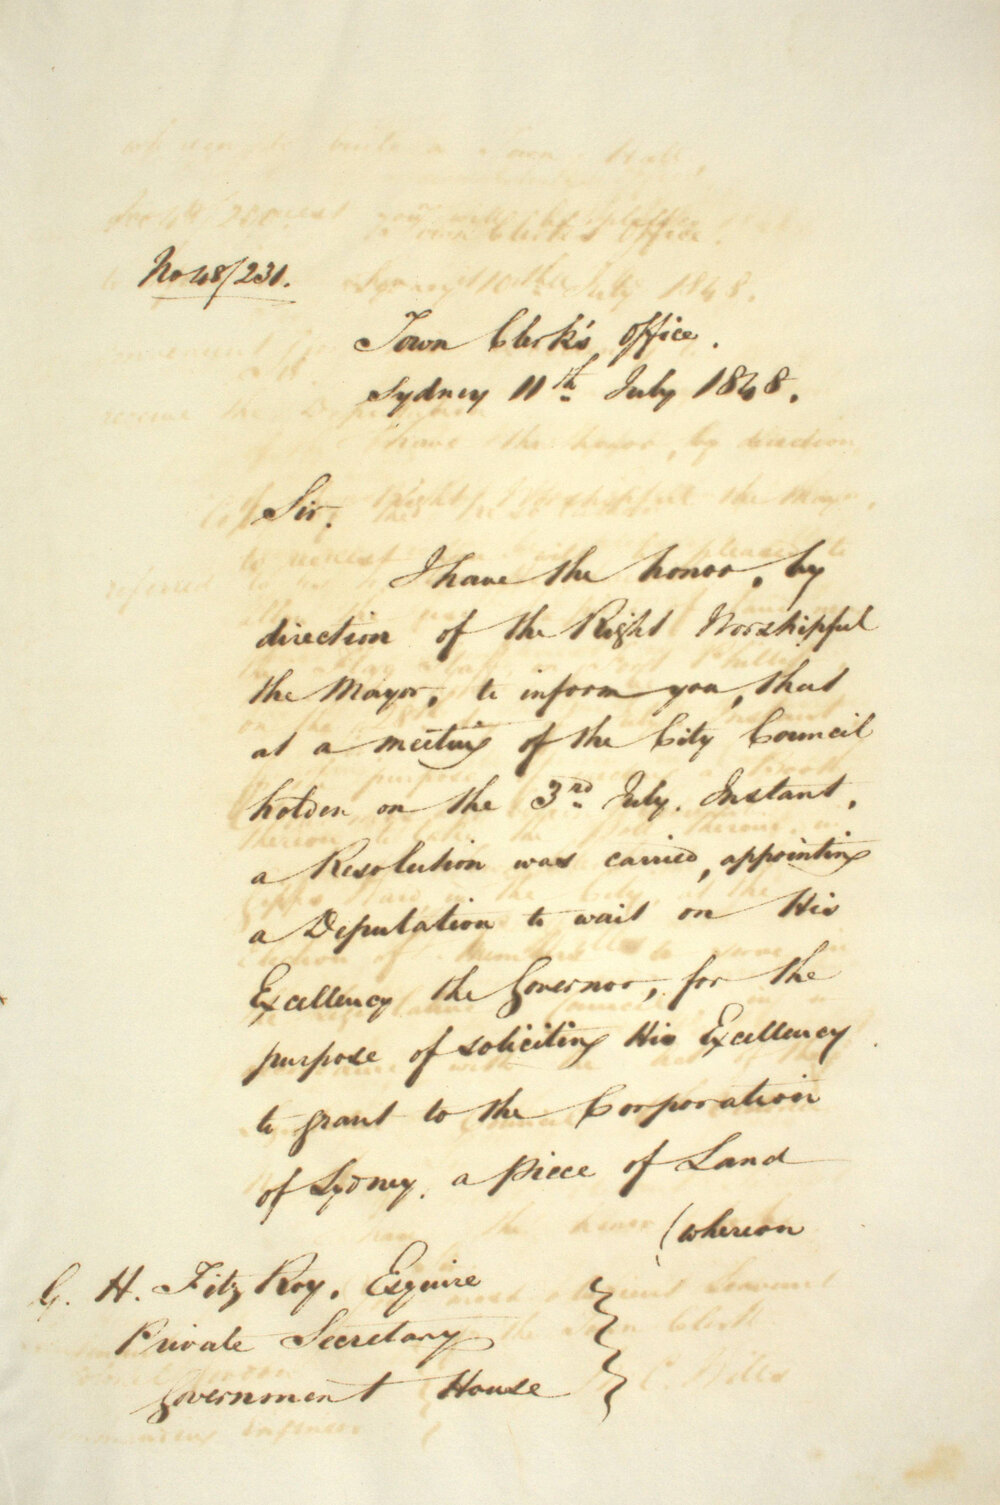 No 48/231.
Town Clerk's Office.
Sydney 11th July 1848.
Sir,
I have the honor, by
direction of the Right Worshipful
the Mayor, to inform you, that
at a meeting of the City Council
holden on the 3rd July. Instant,
a Resolution was carried, appointing
a Deputation to wait on His
Excellency the Governor, for the
purpose of soliciting His Excellency
to grant to the Corporation
of Sydney, a piece of Land
(whereon
G. H. Fitz Roy, Esquire
Private Secretary
Government House